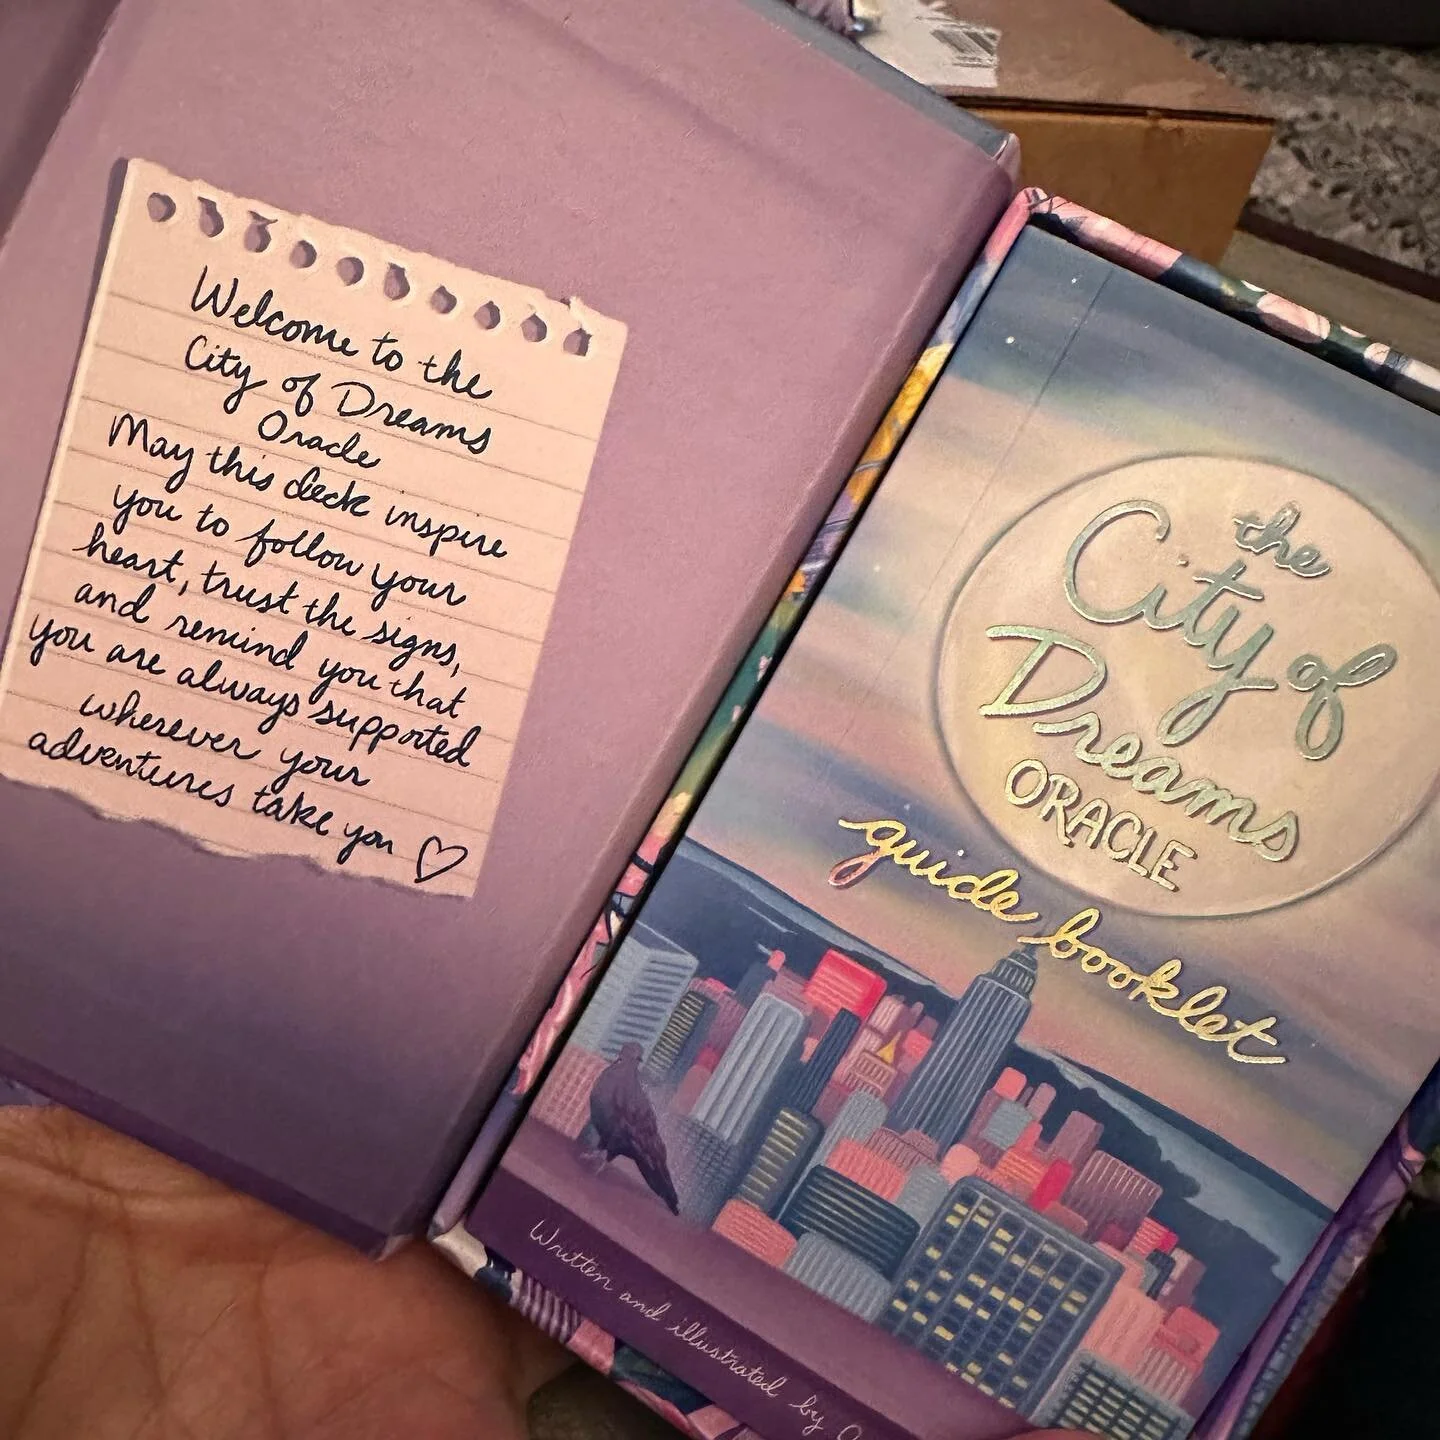 Welcome to the
City of Dreams
Oracle
May this deck inspire
you to follow your
heart, trust the signs,
and remind you that
you are always supported
wherever your
adventures take you
the
City of
Dreams
ORACLE
guide booklet
Written and illustrated by